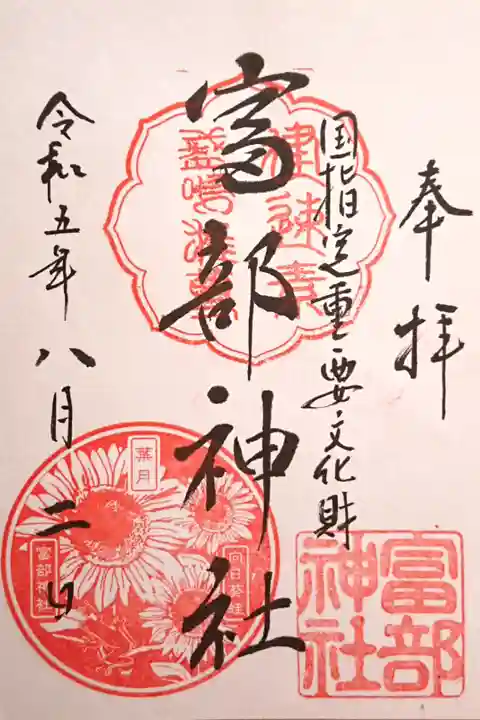 奉拝
国指定重要文化財
富部神社
令和五年八月二日
葉月
向日葵娃
富部神社
富部
神社